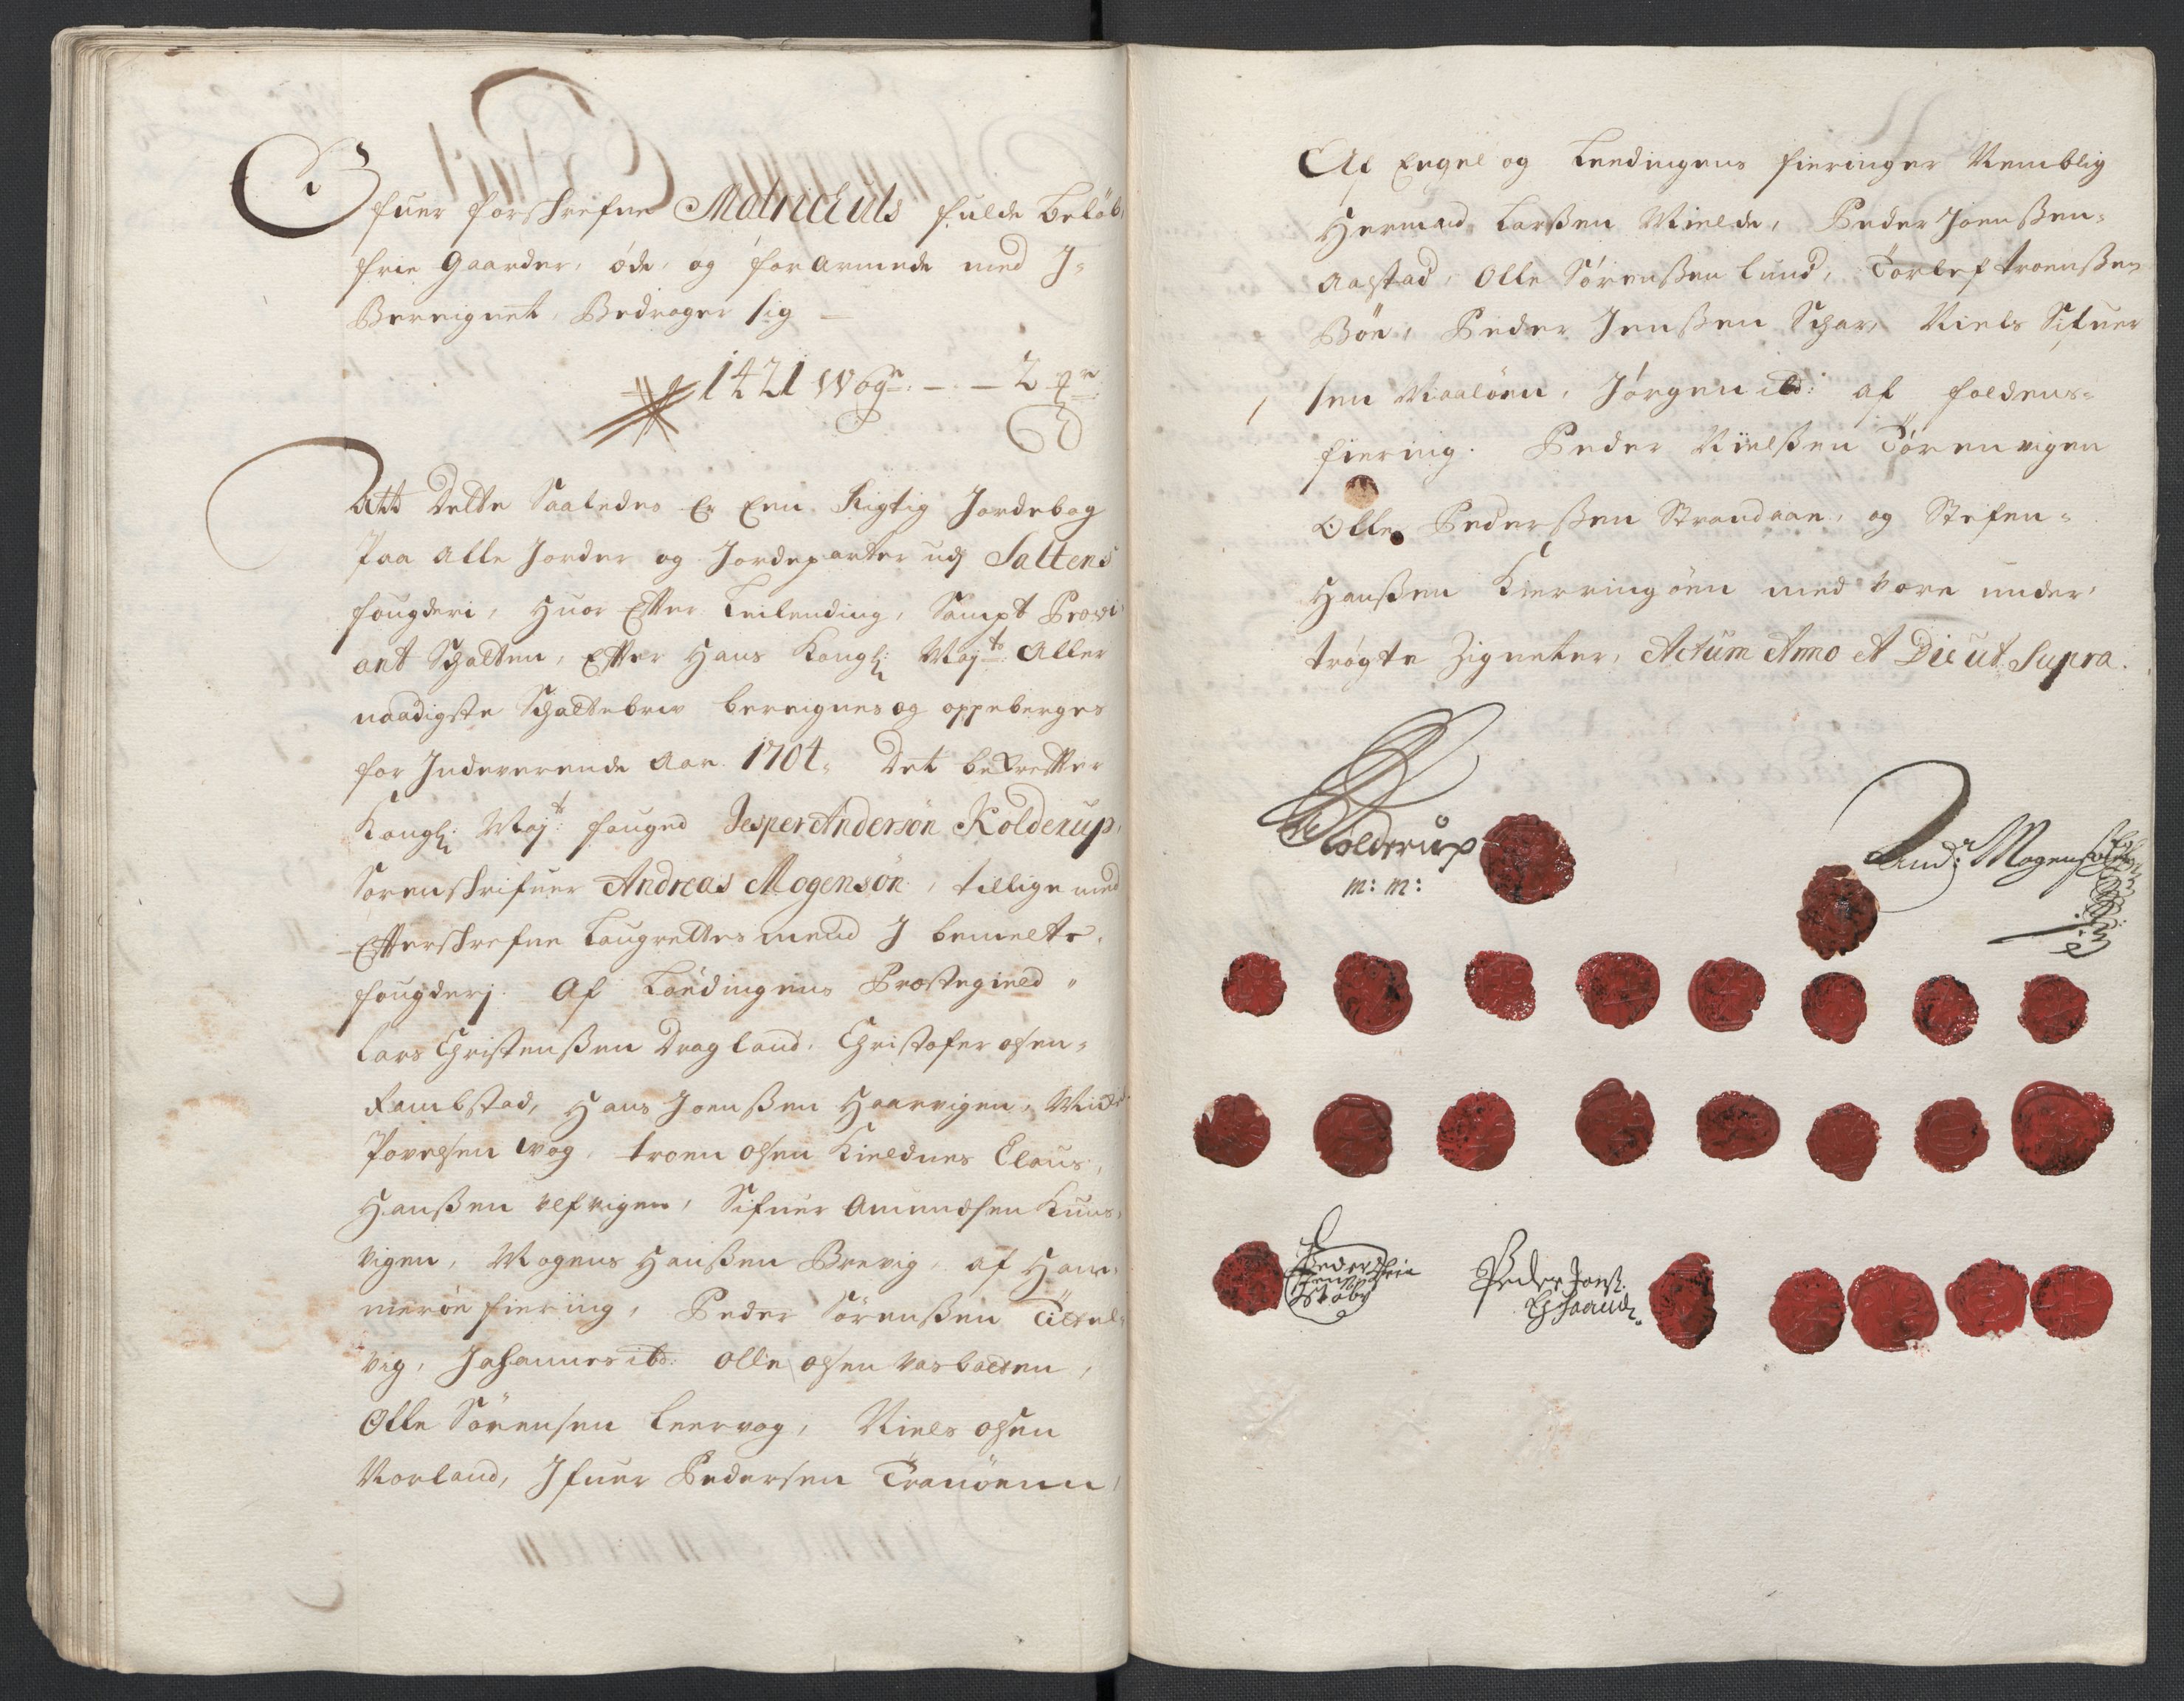 Ofuer forschrefne Matriculs fulde Beløb,
frie Gaarder, øde, og forarmede med J=
Bereignet, Bedrager sig
1421 Wog: — 2 pd
Att Dette Saaledes Er Een Rigtig Jordebog
Paa Alle Jorder og Jordeparter udj Saltens
fougderi, Huor Efter Leilending, Sampt Provi
ant Schatten, Efter Hans Kongl: Mayts: Aller
naadigste Schattebrev bereignes og oppeberges
for Indeverende Aar 1704. Det bekrefter
Kongl: Mayts: fouged Jesper Andersøn Kolderup,
Sorenschrifuer Andreas Mogensøn, tillige med
Efterschrefne Laugrettesmend J bemelte
fougderj. Af Lødingens Prestegield
Lars Christenßen Dragland, Christofer Olsen
Rambstad, Hans Joenßen Haarvigen,
Povelsen Vog, troen Olsen Kieldnes Claus
Hanßen Ulfvigen, Sifuer Amundsen
vigen, Mogens Hanßen Brevig, af Ham
merøe fiering, Peder Sørenßen
vig, Johannes ibd: Olle Olsen Vasbotten,
Olle Sørensen Leervog, Niels Olsen
Norland, Ifuer Pedersen Tranøenn,
Af Engel og Leedingens fieringer Nemblig
Hermand Larßen Mielde, Peder Joenßen=
Aastad, Olle Sørenßen Lund, Torlef troenßen
Bøe, Peder Jenßen Schar, Niels Sifuer
sen Maaløen, Jørgen ibd: af foldens=
fiering. Peder Nielßen Tørenvigen
Olle Pederßen Strandaae, og Stefen=
Hanßen Kierringøen med vore under,
trøgte Zigneter, Actum Anno et Die ut Supra.
Kolderup
m: m:
And: Mogensøn
Peder
Jenß
Peder Jonß: